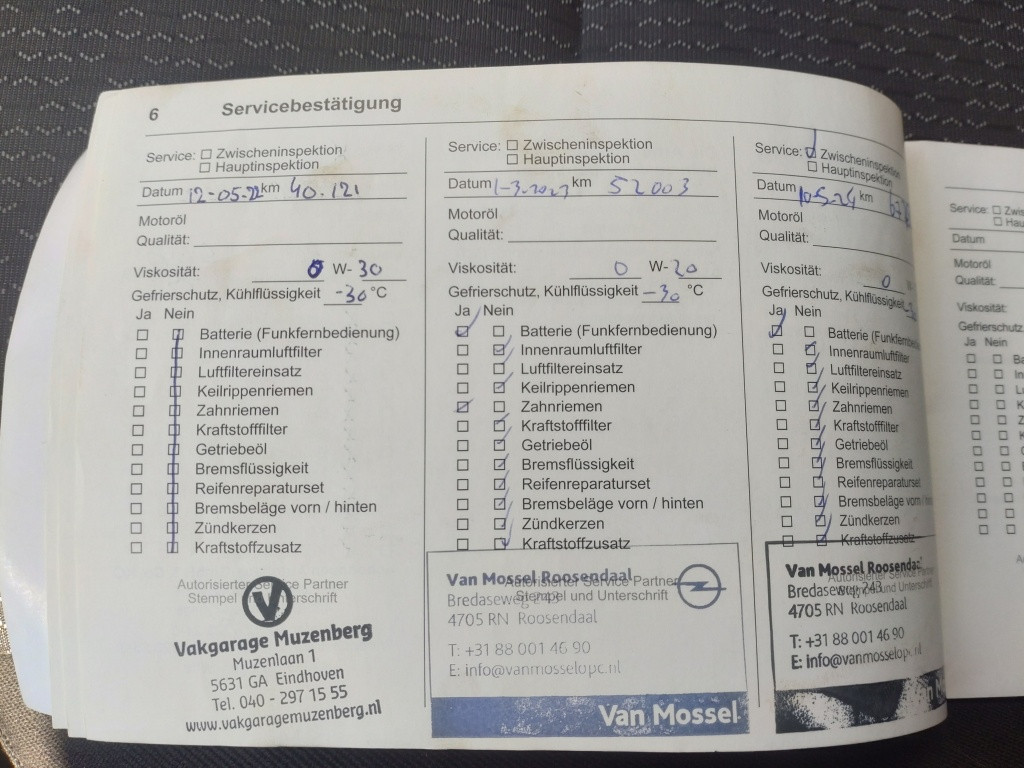 6 Servicebestätigung
Service: ☐ Zwischeninspektion
☐ Hauptinspektion
Datum 12-05-22 km 40.121
Motoröl
Qualität:
Viskosität: 0 W-30
Gefrierschutz, Kühlflüssigkeit -30 °C
Ja Nein
Batterie (Funkfernbedienung)
Innenraumluftfilter
Luftfiltereinsatz
Keilrippenriemen
Zahnriemen
Kraftstofffilter
Getriebeöl
Bremsflüssigkeit
Reifenreparaturset
Bremsbeläge vorn / hinten
Zündkerzen
Kraftstoffzusatz
Autorisierter Service Partner
Stempel und Unterschrift
V
Vakgarage Muzenberg
Muzenlaan 1
5631 GA Eindhoven
Tel. 040 - 297 15 55
www.vakgaragemuzenberg.nl
Service: ☐ Zwischeninspektion
☐ Hauptinspektion
Datum 1-3-2023 km 52003
Motoröl
Qualität:
Viskosität: 0 W-20
Gefrierschutz, Kühlflüssigkeit -30 °C
Ja Nein
Batterie (Funkfernbedienung)
Innenraumluftfilter
Luftfiltereinsatz
Keilrippenriemen
Zahnriemen
Kraftstofffilter
Getriebeöl
Bremsflüssigkeit
Reifenreparaturset
Bremsbeläge vorn / hinten
Zündkerzen
Kraftstoffzusatz
Autorisierter Service Partner
Stempel und Unterschrift
Van Mossel Roosendaal
Bredaseweg 243
4705 RN Roosendaal
T: +31 88 001 46 90
E: info@vanmosselopc.nl
Van Mossel
Service: ☑ Zwischeninspektion
☐ Hauptinspektion
Datum 10-5-24 km
Motoröl
Qualität:
Viskosität: 0
Gefrierschutz, Kühlflüssigkeit
Ja Nein
Batterie (Funkfernbe
Innenraumluftfilter
Luftfiltereinsatz
Keilrippenriemen
Zahnriemen
Kraftstofffilter
Getriebeöl
Bremsflüssigkeit
Reifenreparaturset
Bremsbeläge vorn /
Zündkerzen
Kraftstoffzusatz
Autorisierter Service
Stempel und Unterschrift
Van Mossel Roosendaal
Bredaseweg 243
4705 RN Roosendaal
T: +31 88 001 46 90
E: info@vanmosselopc.nl
Service: ☐ Zwis
☐ Hau
Datum
Motoröl
Qualität:
Viskosität:
Gefrierschutz
Ja Nein